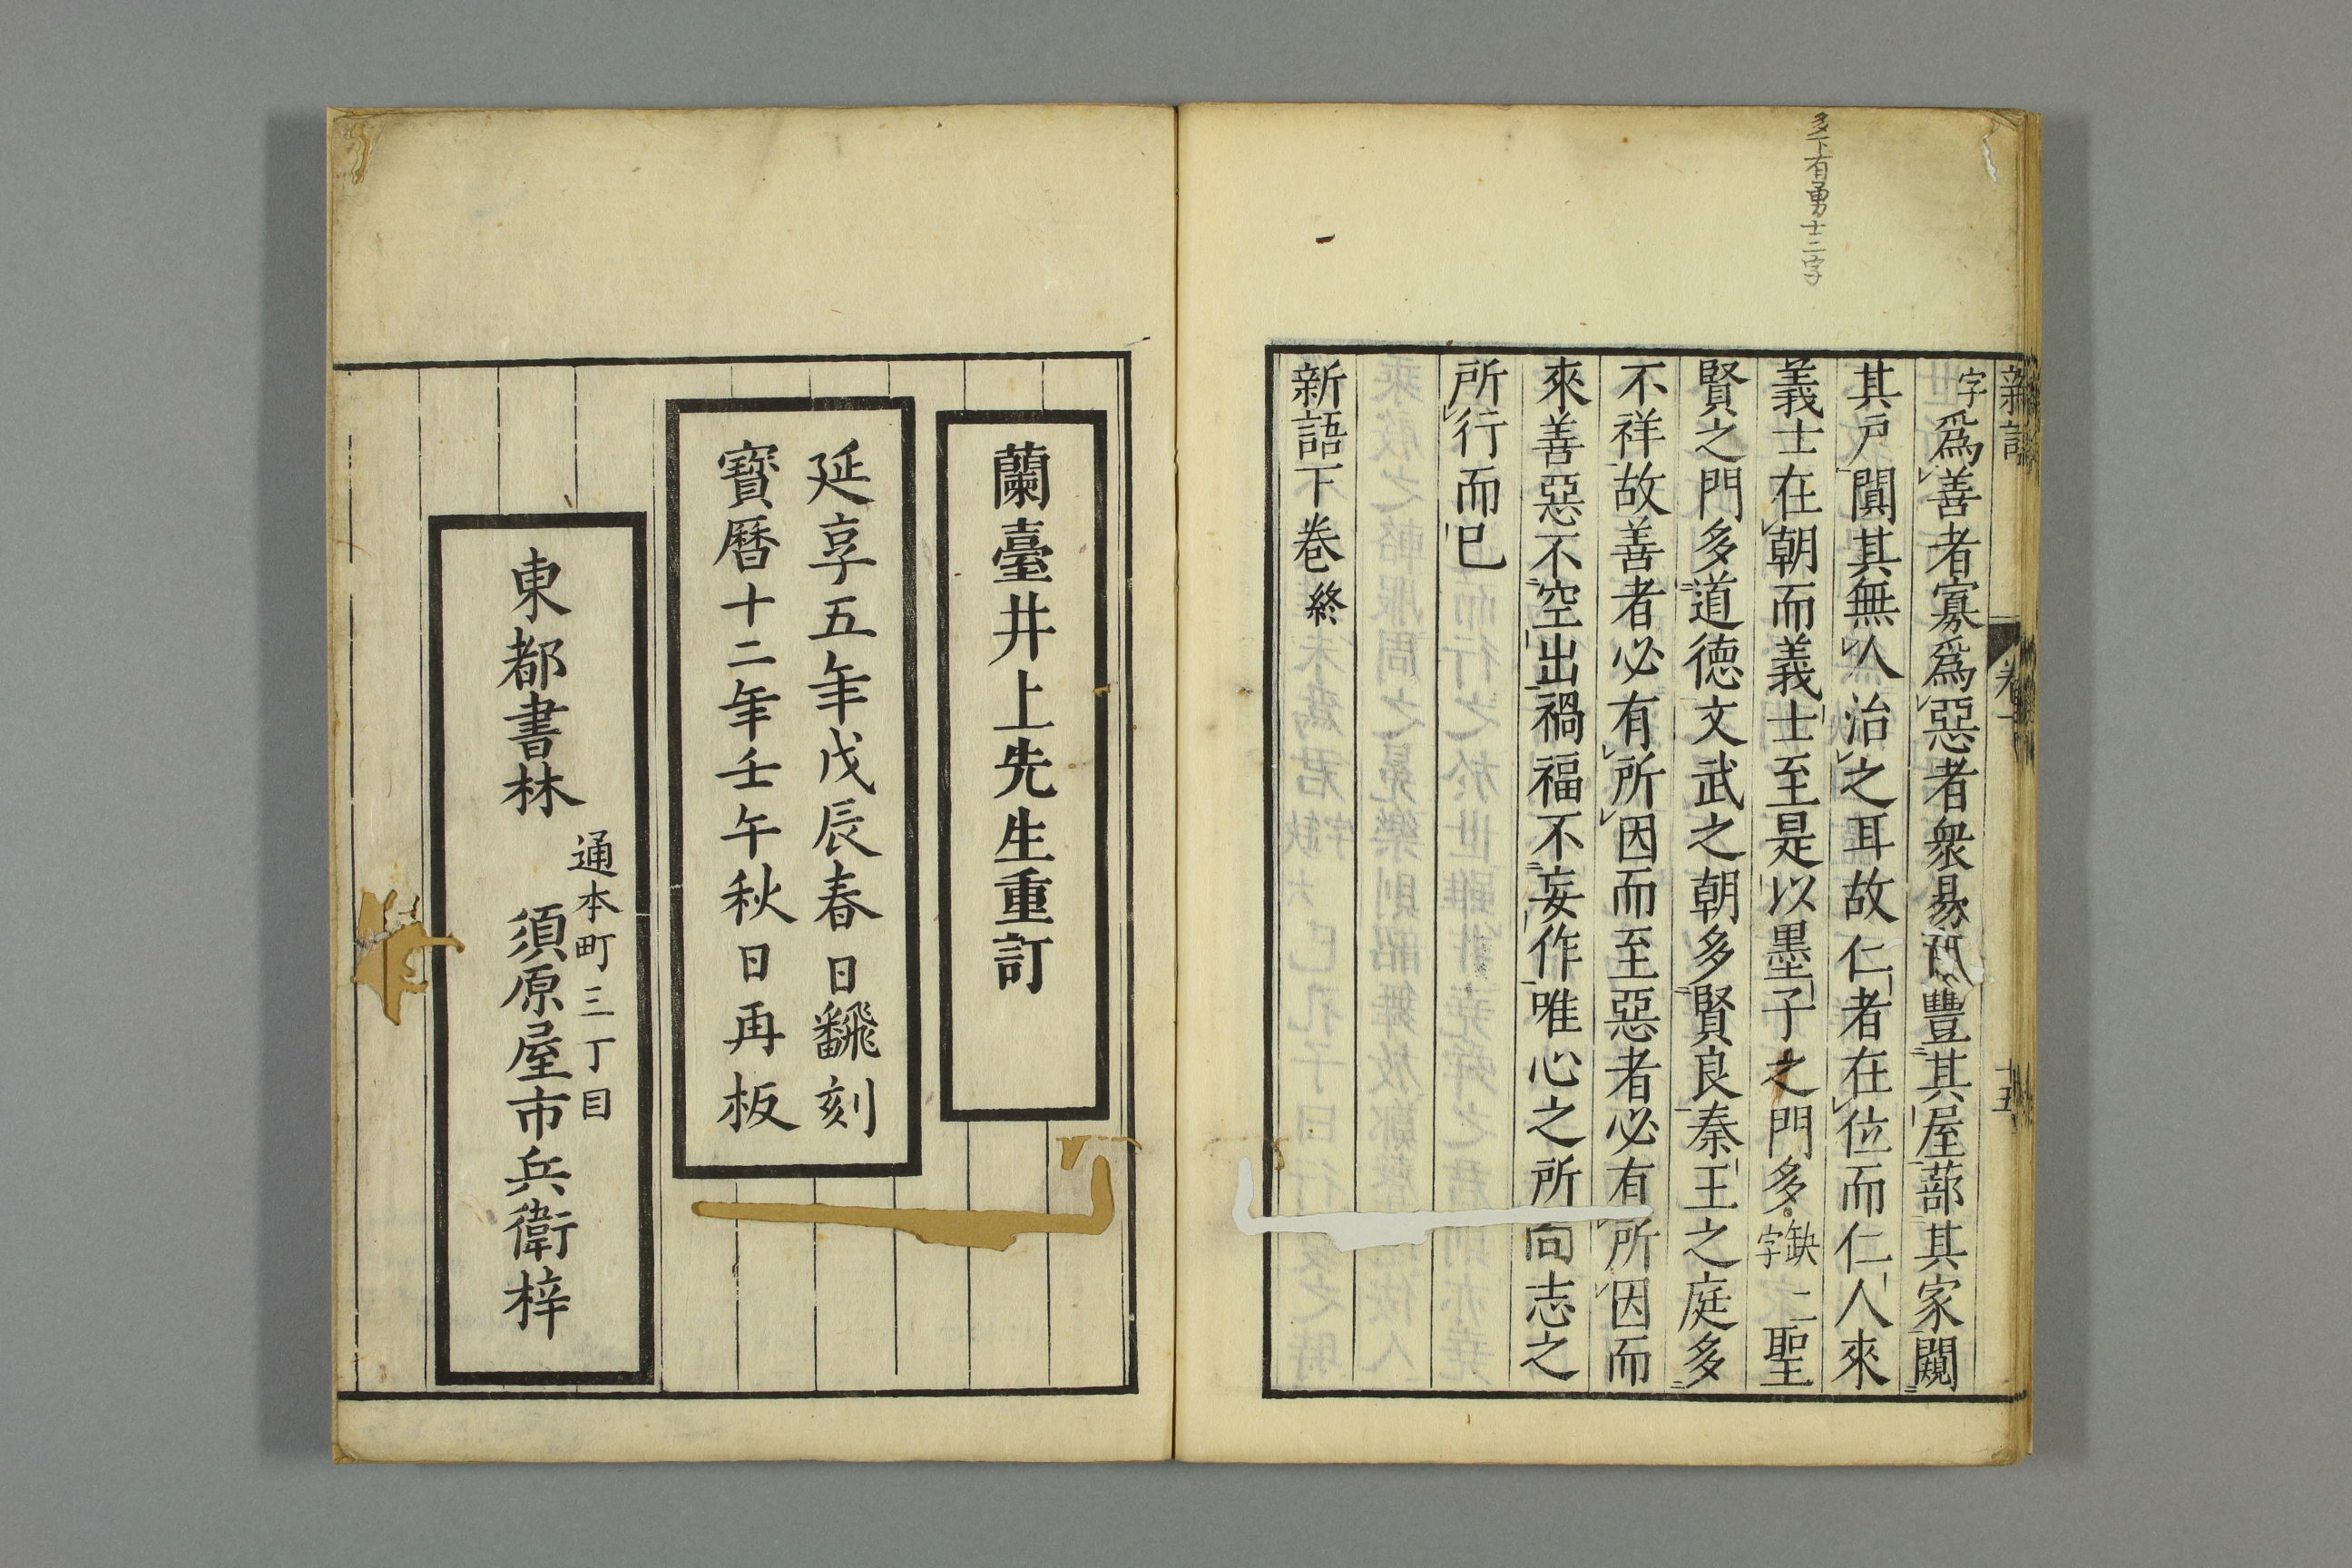 多下有勇士二字
字爲善者寡爲惡者衆易曰豐其屋蔀其家闚
其戶闃其無人治之耳故仁者在位而仁人來
義士在朝而義士至是以墨子之門多缺二字聖
賢之門多道德文武之朝多賢良秦王之庭多
不祥故善者必有所因而至惡者必有所因而
來善惡不空出禍福不妄作唯心之所向志之
所行而已
新語下卷終
蘭臺井上先生重訂
延享五年戊辰春日飜刻
寶曆十二年壬午秋日再板
通本町三丁目
東都書林 須原屋市兵衛梓